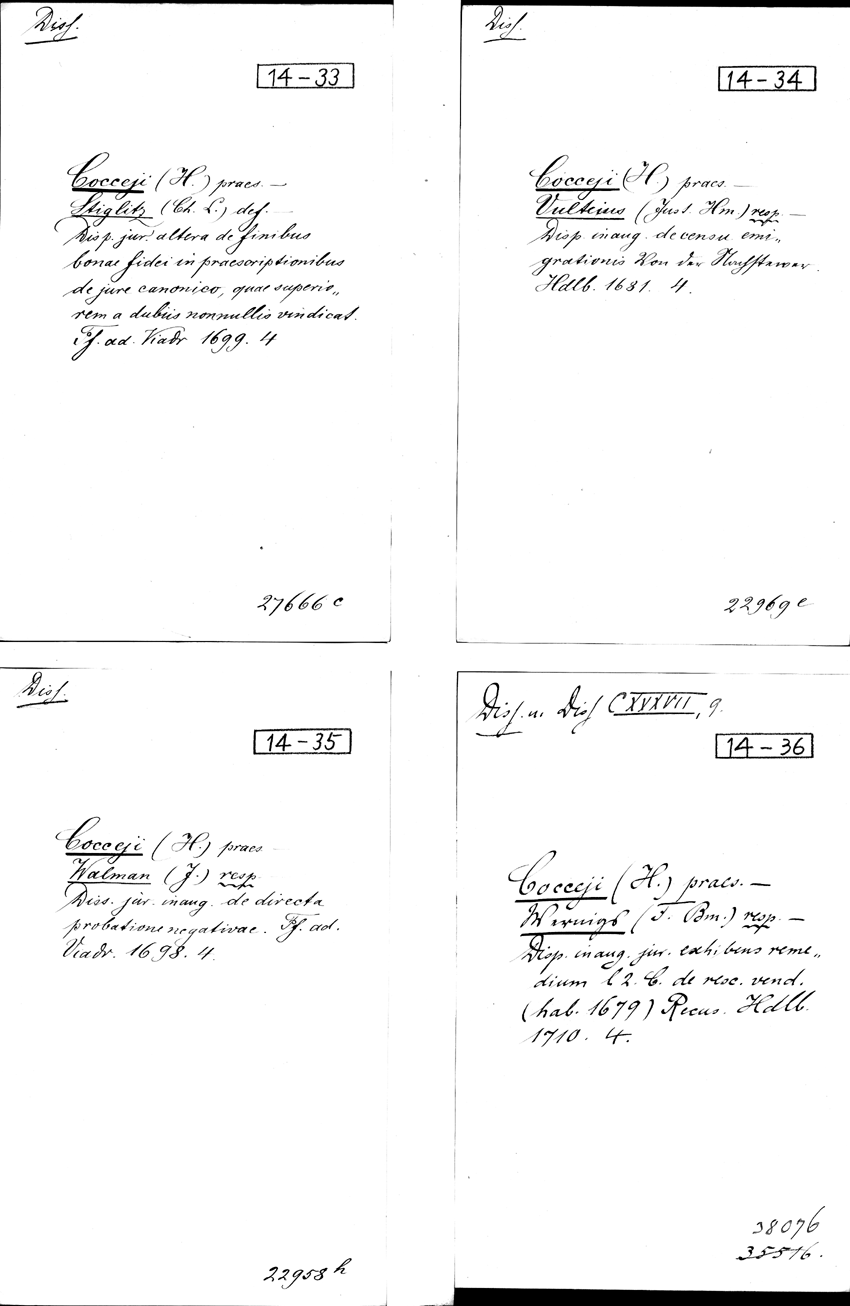 Diss.
14-33
Cocceji (H.) praes. —
Stiglitz (Ch. L.) def. —
Disp. jur. altera de finibus
bonae fidei in praescriptionibus
de jure canonico, quae superio„
rem a dubiis nonnullis vindicat.
Ff. ad. Viadr 1699. 4
27666 c
Diss.
14-34
Cocceji (H.) praes. —
Vulteius (Just. Hm.) resp. —
Disp. inaug. de censu emi„
grationis Von der Nachstewer.
Hdlb. 1681. 4.
22969 e
Diss.
14-35
Cocceji (H.) praes —
Walman (J.) resp.
Diss. jur. inaug. de directa
probatione negativae. Ff. ad.
Viadr. 1698. 4.
22958 h
Diss. u. Diss CXXXVII, 9.
14-36
Cocceji (H.) praes. —
Wernigs (F. Bm.) resp. —
Disp. inaug. jur. exhibens reme„
dium l 2. C. de resc. vend.
(hab. 1679) Recus. Hdlb.
1710. 4.
38076
35516.